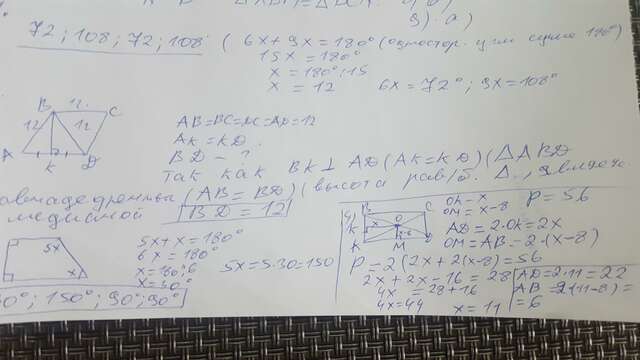 72; 108; 72; 108 ( 6x + 9x = 180° (
15x = 180°
x = 180° : 15
x = 12 6x = 72°; 9x = 108°
B 12 C
12 12
A K D
AB=BC=DC=AD=12
AK = KD.
BD - ?
ТАК КАК BK ⊥ AD (AK=KD) (△ABD
(AB = BD) (высота рав/б. △.,
медианой BD = 12
5x
x
5x + x = 180°
6x = 180°
x = 180:6
x = 30°
5x = 5·30 = 150
150°; 90°; 90°
4) B C
K O
A M D
OK - x
OM = x-8
P = 56
AD = 2·OK = 2x
OM = AB = 2·(x-8)
P = 2(2x + 2(x-8) = 56
2x + 2x - 16 = 28
4x = 28+16
4x = 44 x = 11
AD = 2·11 = 22
AB = 2(11-8) =
= 6